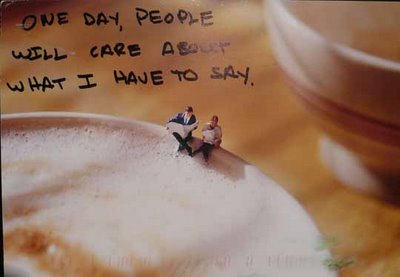 ONE DAY, PEOPLE
WILL CARE ABOUT
WHAT I HAVE TO SAY.